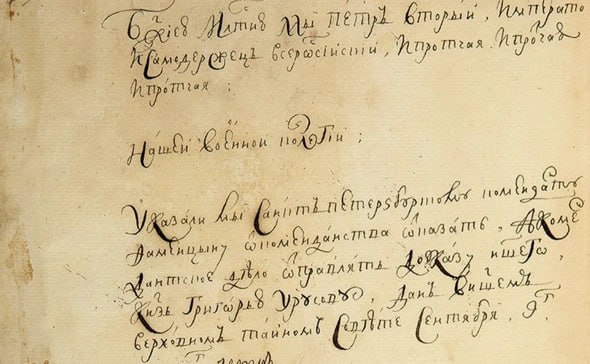 Бжиею Млтию Мы Петръ Вторый, Императо
И Самодержецъ всеросійскій, И протчая И протчая
И протчая :
Нашей военной колегіи ;
Указали мы Санктъ петербургскому коменданту
Фаминцыну от комендантства отказать, А коме
дантское дѣло отправлять до указу ншего,
Кнзь Григорью Урусову, Данъ в ншемъ
верховномъ тайномъ Совѣте Сентября, 9г